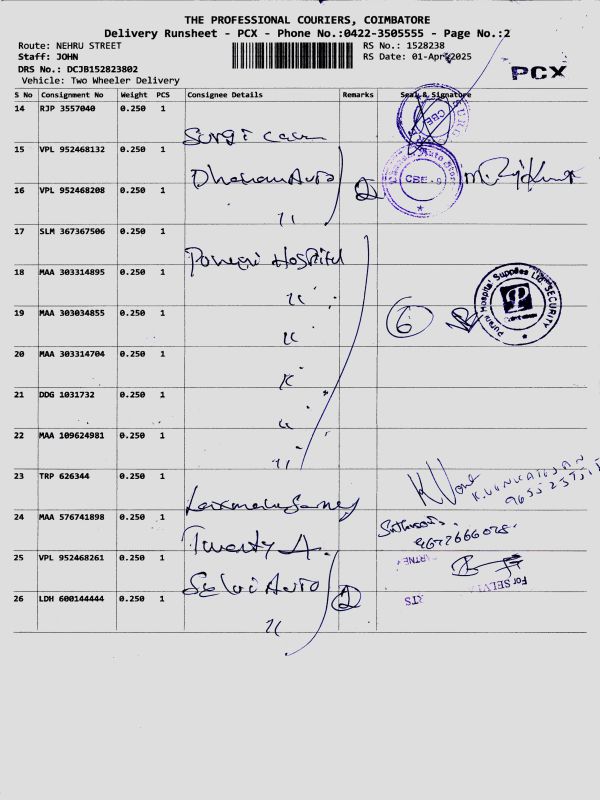 THE PROFESSIONAL COURIERS, COIMBATORE
Delivery Runsheet - PCX - Phone No.:0422-3505555 - Page No.:2
Route: NEHRU STREET RS No.: 1528238
Staff: JOHN RS Date: 01-Apr-2025
DRS No.: DCJB152823802
Vehicle: Two Wheeler Delivery
PCX
S No Consignment No Weight PCS Consignee Details Remarks Seal & Signature
14 RJP 3557040 0.250 1
CBE
15 VPL 952468132 0.250 1
16 VPL 952468208 0.250 1 Dhanam Auto 2 CBE-9
"
17 SLM 367367506 0.250 1
Hospital
18 MAA 303314895 0.250 1
"
19 MAA 303034855 0.250 1 6 Purani Hospital Supplies Ltd. SECURITY
"
20 MAA 303314704 0.250 1
"
21 DDG 1031732 0.250 1
"
22 MAA 109624981 0.250 1
"
23 TRP 626344 0.250 1
24 MAA 576741898 0.250 1
Twenty 4.
25 VPL 952468261 0.250 1
Selvi Auto 2 For SELVI
26 LDH 600144444 0.250 1
"